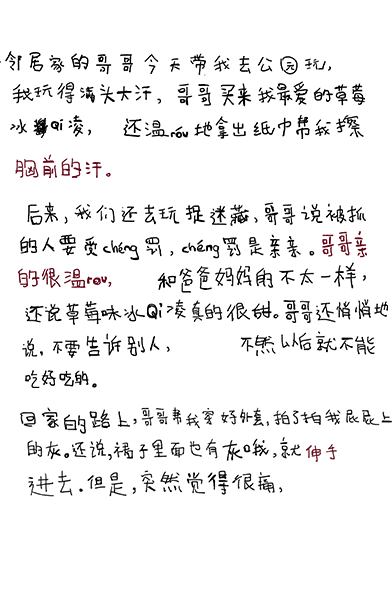 邻居家的哥哥今天带我去公园玩,
我玩得满头大汗,哥哥买来我最爱的草莓
冰Qi凌,还温róu地拿出纸巾帮我擦
胸前的汗。
后来,我们还去玩捉迷藏,哥哥说被抓
的人要受chéng罚,chéng罚是亲亲。哥哥亲
的很温rou,和爸爸妈妈的不太一样,
还说草莓味冰Qi凌真的很甜。哥哥还悄悄地
说,不要告诉别人,不然以后就不能
吃好吃的。
回家的路上,哥哥帮我穿好外套,拍了拍我屁屁上
的灰。还说,裙子里面也有灰哦,就伸手
进去。但是,突然觉得很痛,